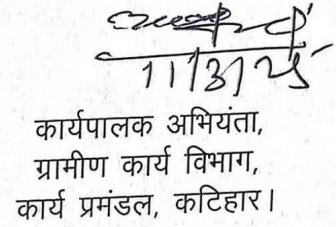 कार्यपालक अभियंता,
ग्रामीण कार्य विभाग,
कार्य प्रमंडल, कटिहार।